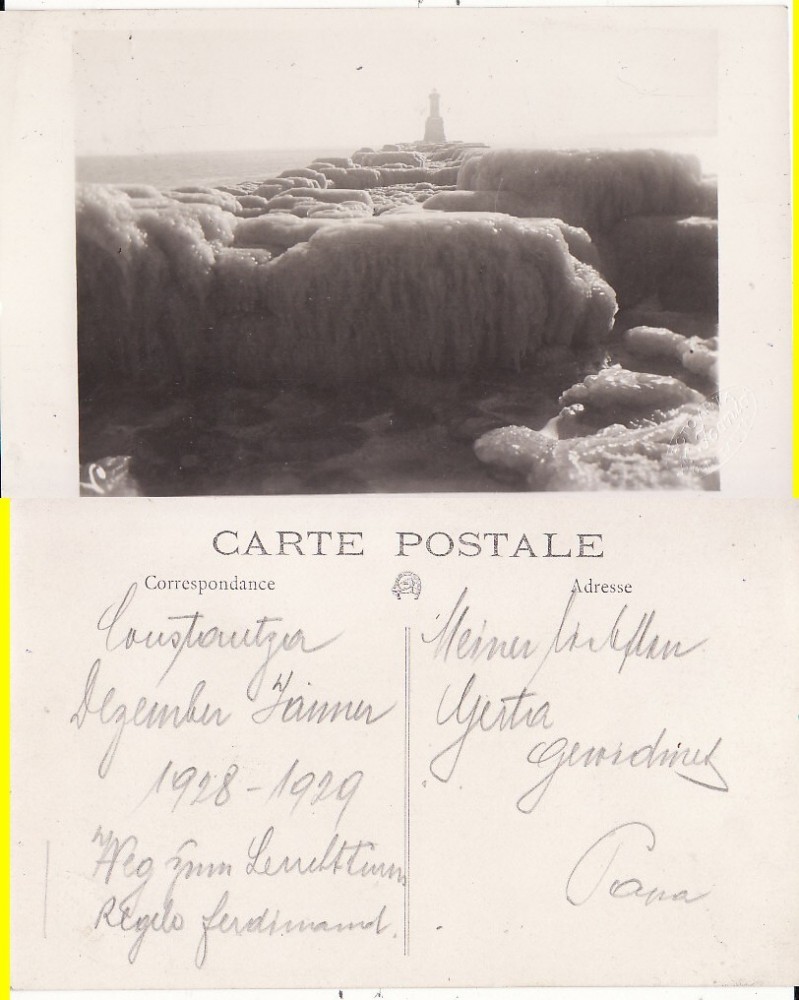 CARTE POSTALE
Correspondance
Adresse
Constantza
Dezember Jänner
1928 - 1929
Weg zum Leuchtturm
Regele Ferdinand.
Meiner liebsten
Gerta
gewidmet
Papa